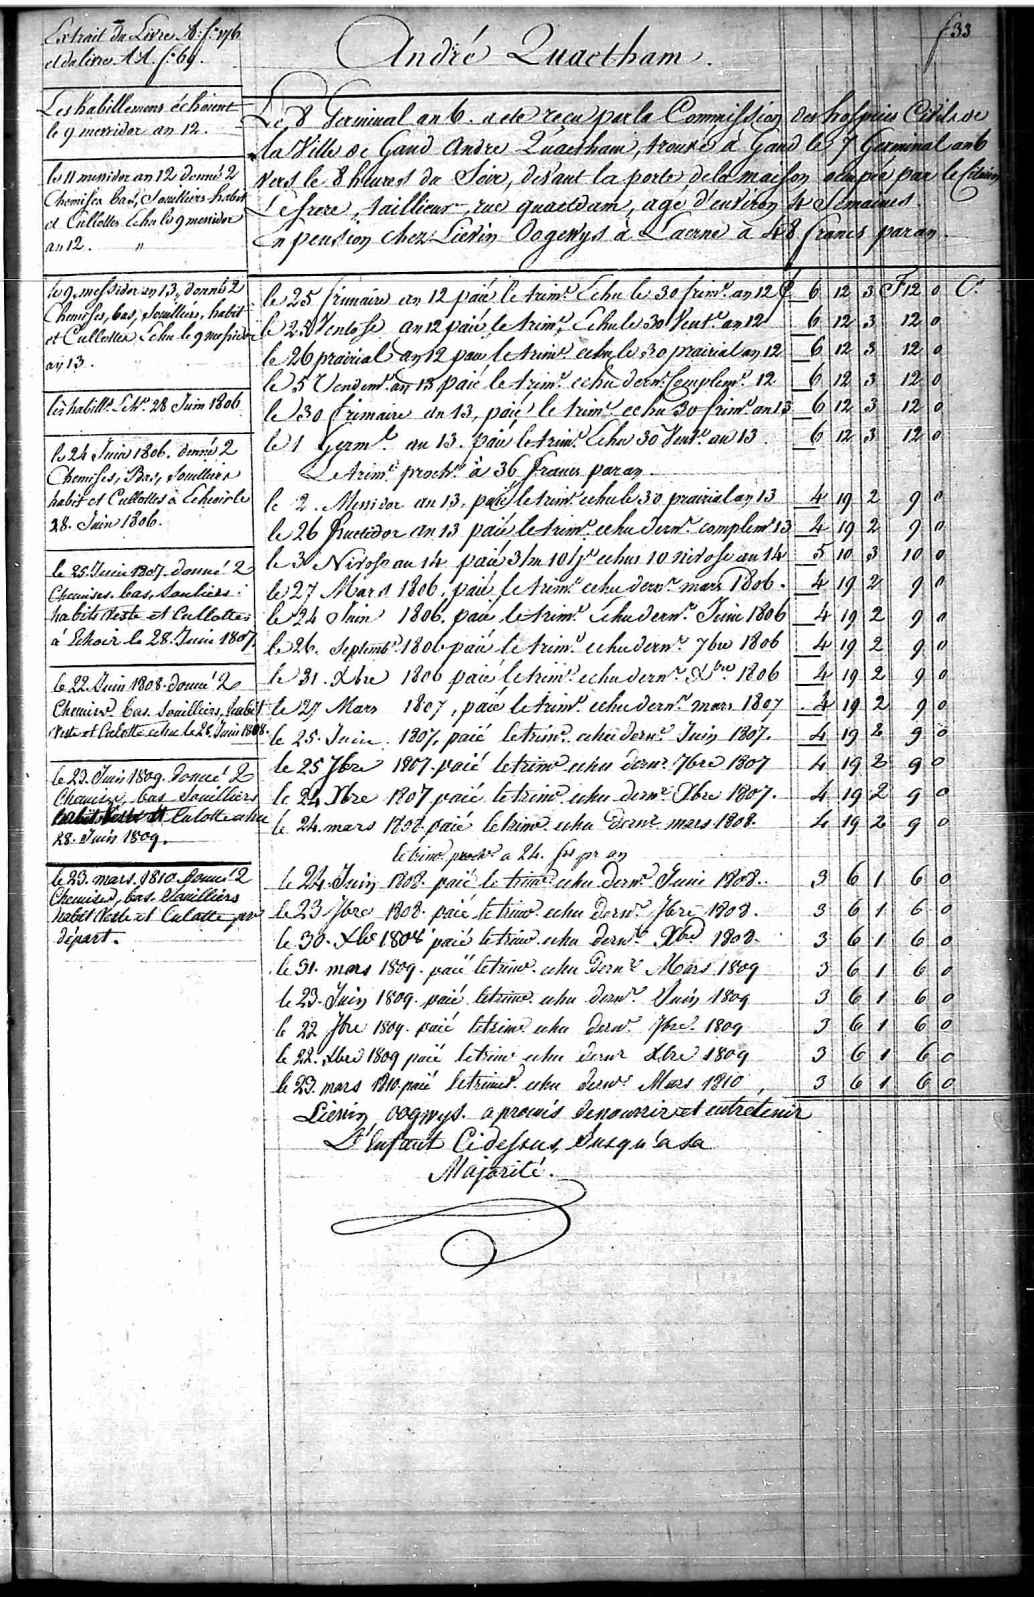 Extrait du Livre A. f.º 176
et du livre AA. f.º 69.
f 33
André Quaetham.
Les habillemens échoient
le 9 messidor an 12.
le 11 messidor an 12 donné 2
Chemises bas, Souilliers habit
et Cullottes echu le 9 messidor
an 12. "
le 9 messidor an 13, donné 2
Chemises, bas, Souilliers, habit
et Cullottes, Echu le 9 messidor
an 13.
les habillm. Echt. 28 Juin 1806
le 24 Juin 1806. donné 2
Chemises, Bas, Souilliers
habit et Cullottes à Echeoir le
28. Juin 1806.
le 25. Juin 1807. donné 2
Chemises. bas, Souliers.
habits Veste et Cullottes
à Echoir le 28. Juin 1807.
le 22. Juin 1808. donné 2
Chemises. bas. Souilliers, habit
Veste et Culotte echu le 28. Juin 1808.
le 23. Juin 1809. donné 2
Chemises, bas Souilliers
habit Veste et Culotte echu
28. Juin 1809.
le 23. mars. 1810. donné 2
Chemises, bas. Souilliers
habit Veste et Culotte pr
départ.
Le 8 Germinal an 6. a eté reçu par la Commission des hospices Civils de
la Ville de Gand Andre Quaetham, trouvé à Gand le 7 Germinal an 6
vers le 8 heures du Soir, devant la porte de la maison ocupée par le Citoien
Lefrere, taillieur, rue quaetdam, agé d'environ 4 Semaines.
En pension chez Lievin Dogewys à Laerne à 48 francs par an.
le 25 frimaire an 12 paié le trim.e Echu le 30 frim.e an 12 £ 6 12 3 F 12 0 C.s
le 28 Ventose an 12 paié le trim.e Echu le 30 Vent.e an 12 6 12 3 12 0
le 26 prairial an 12 paié le trim.e echu le 30 prairial an 12 6 12 3 12 0
le 5 Vendem.e an 13 paié le trim.e echu dern.r Complem.e 12 6 12 3 12 0
le 30 frimaire an 13, paié le trim.e echu 30 frim.e an 13 6 12 3 12 0
le 1 Germ.l an 13. paié le trim.e Echu 30 Vent.e an 13. 6 12 3 12 0
Le trim.e proch.n à 36 francs par an.
le 2. Messidor an 13, paié le trim.e echu le 30 prairial an 13 4 19 2 9 0
le 26 fructidor an 13 paié le trim.e echu dern.r complem.e 13 4 19 2 9 0
le 3 Nivose an 14 paié 3 m 10 j.s echus 10 nivose an 14 5 10 3 10 0
le 27 Mars 1806, paié le trim.e echu dern.r mars 1806. 4 19 2 9 0
le 24 Juin 1806. paié le trim.e Echu dern.r Juin 1806 4 19 2 9 0
le 26. Septemb.e 1806 paié le trim.e echu dern.r 7bre 1806 4 19 2 9 0
le 31. Xbre 1806 paié le trim.e echu dern.r Xbre 1806 4 19 2 9 0
le 27 Mars 1807, paié le trim.e echu dern.r mars 1807 4 19 2 9 0
le 25. Juin 1807, paié le trim.e echu dern.r Juin 1807. 4 19 2 9 0
le 25 7bre 1807. paié le trim.e echu dern.r 7bre 1807 4 19 2 9 0
le 24 Xbre 1807 paié le trim.e echu dern.r Xbre 1807. 4 19 2 9 0
le 24. mars 1808. paié le trim.e echu dern.r mars 1808. 4 19 2 9 0
le trim.e proch.n a 24. frs pr an
le 24. Juin 1808. paié le trim.e echu dern.r Juin 1808. 3 6 1 6 0
le 23 7bre 1808. paié le trim.e echu dern.r 7bre 1808. 3 6 1 6 0
le 30. Xbre 1808 paié le trim.e echu dern.r Xbre 1808. 3 6 1 6 0
le 31. mars 1809. paié le trim.e echu dern.r Mars 1809 3 6 1 6 0
le 23. Juin 1809. paié le trim.e echu dern.r Juin 1809 3 6 1 6 0
le 22 7bre 1809. paié le trim.e echu dern.r 7bre. 1809 3 6 1 6 0
le 22. Xbre 1809 paié le trim.e echu dern.r Xbre 1809 3 6 1 6 0
le 23. mars 1810. paié le trim.e echu dern.r Mars 1810 3 6 1 6 0
Lievin Dogwys. a promis de nourrir et entretenir
L'Enfant Ci dessus, Jusqu'a sa
Majorité.